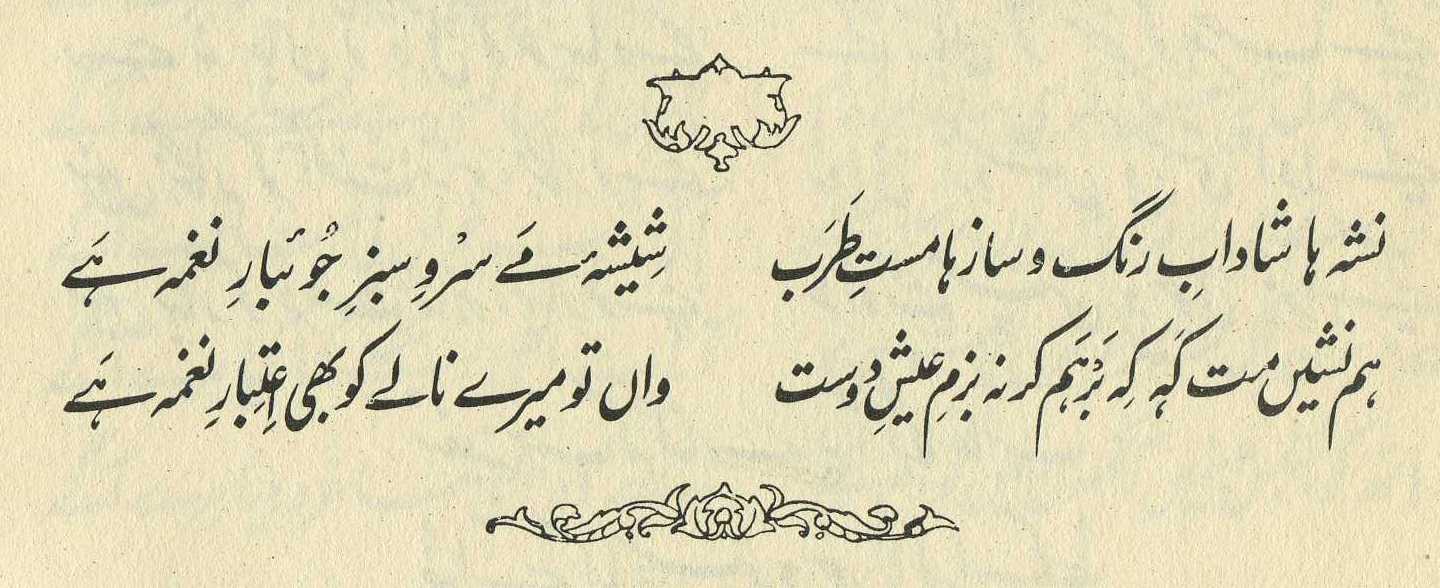 نشہ ہا شادابِ رنگ و ساز ہا مستِ طَرَب شِیشۂ مَے سَرْوِ سبزِ جُوئبارِ نغمہ ہَے
ہم نشیں مت کَہہ کِہ بَرْہَم کر نہ بزمِ عیشِ دوست واں تو میرے نالے کو بھی اِعتِبارِ نغمہ ہَے